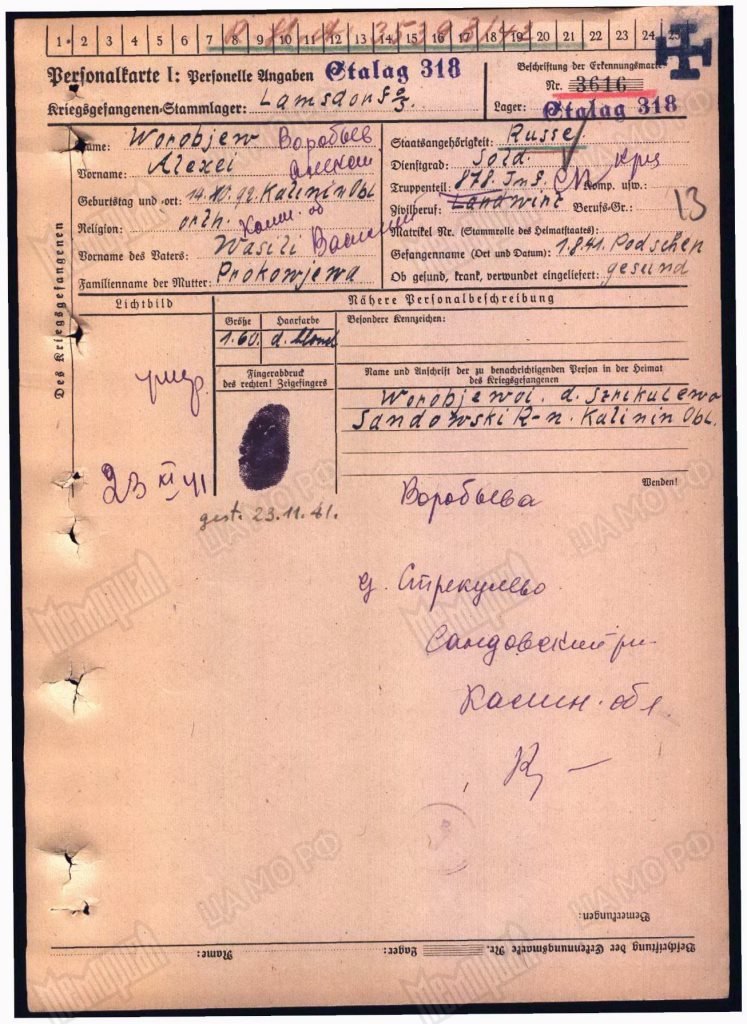 1 2 3 4 5 6 7 8 9 10 11 12 13 14 15 16 17 18 19 20 21 22 23 24 25
Personalkarte I: Personelle Angaben Stalag 318
Beschriftung der Erkennungsmarke
Nr. 3616
Kriegsgefangenen-Stammlager: Lamsdorf
Lager: Stalag 318
Des Kriegsgefangenen
Name: Worobjew Воробьев
Vorname: Alexei Алексей
Geburtstag und -ort: Kalinin Obl
Religion: orth. Калин. об
Vorname des Vaters: Wasili Василий
Familienname der Mutter: Prokowjewa
Staatsangehörigkeit: Russe
Dienstgrad: Sold. крц
Truppenteil: 878. Inf. СП Komp. usw.:
Zivilberuf: Landwirt Berufs-Gr.: 13
Matrikel Nr. (Stammrolle des Heimatstaates):
Gefangennahme (Ort und Datum): 1.8.41. Podschen
Ob gesund, krank, verwundet eingeliefert: gesund
Lichtbild
Nähere Personalbeschreibung
Größe Haarfarbe Besondere Kennzeichen:
1.60. d. blond
Fingerabdruck
des rechten! Zeigefingers
Name und Anschrift der zu benachrichtigenden Person in der Heimat
des Kriegsgefangenen
d. Strikulewo
Sandowski R-n. Kalinin Obl.
умер.
23 XI 41
gest. 23.11.41.
Wenden!
Воробьева
д. Стрекулево
Сандовский р-н
Калин. обл.
Bemerkungen:
Beschriftung der Erkennungsmarke Nr. Lager: Name:
Мемориал
ЦА МО РФ